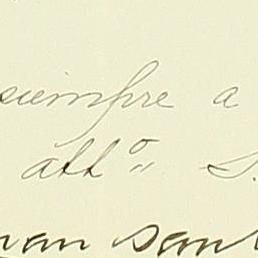 siempre a
att.º S.
uan San